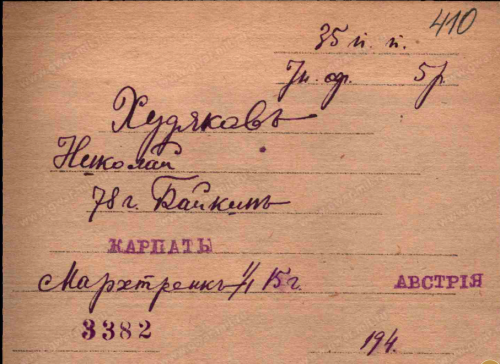 410
35 п. п.
Ун. оф. 5 р.
Худяковъ
Николай
78 г. Байкинъ
КАРПАТЫ
Мархтренкъ 1/1 15 г. АВСТРІЯ
3382
194.